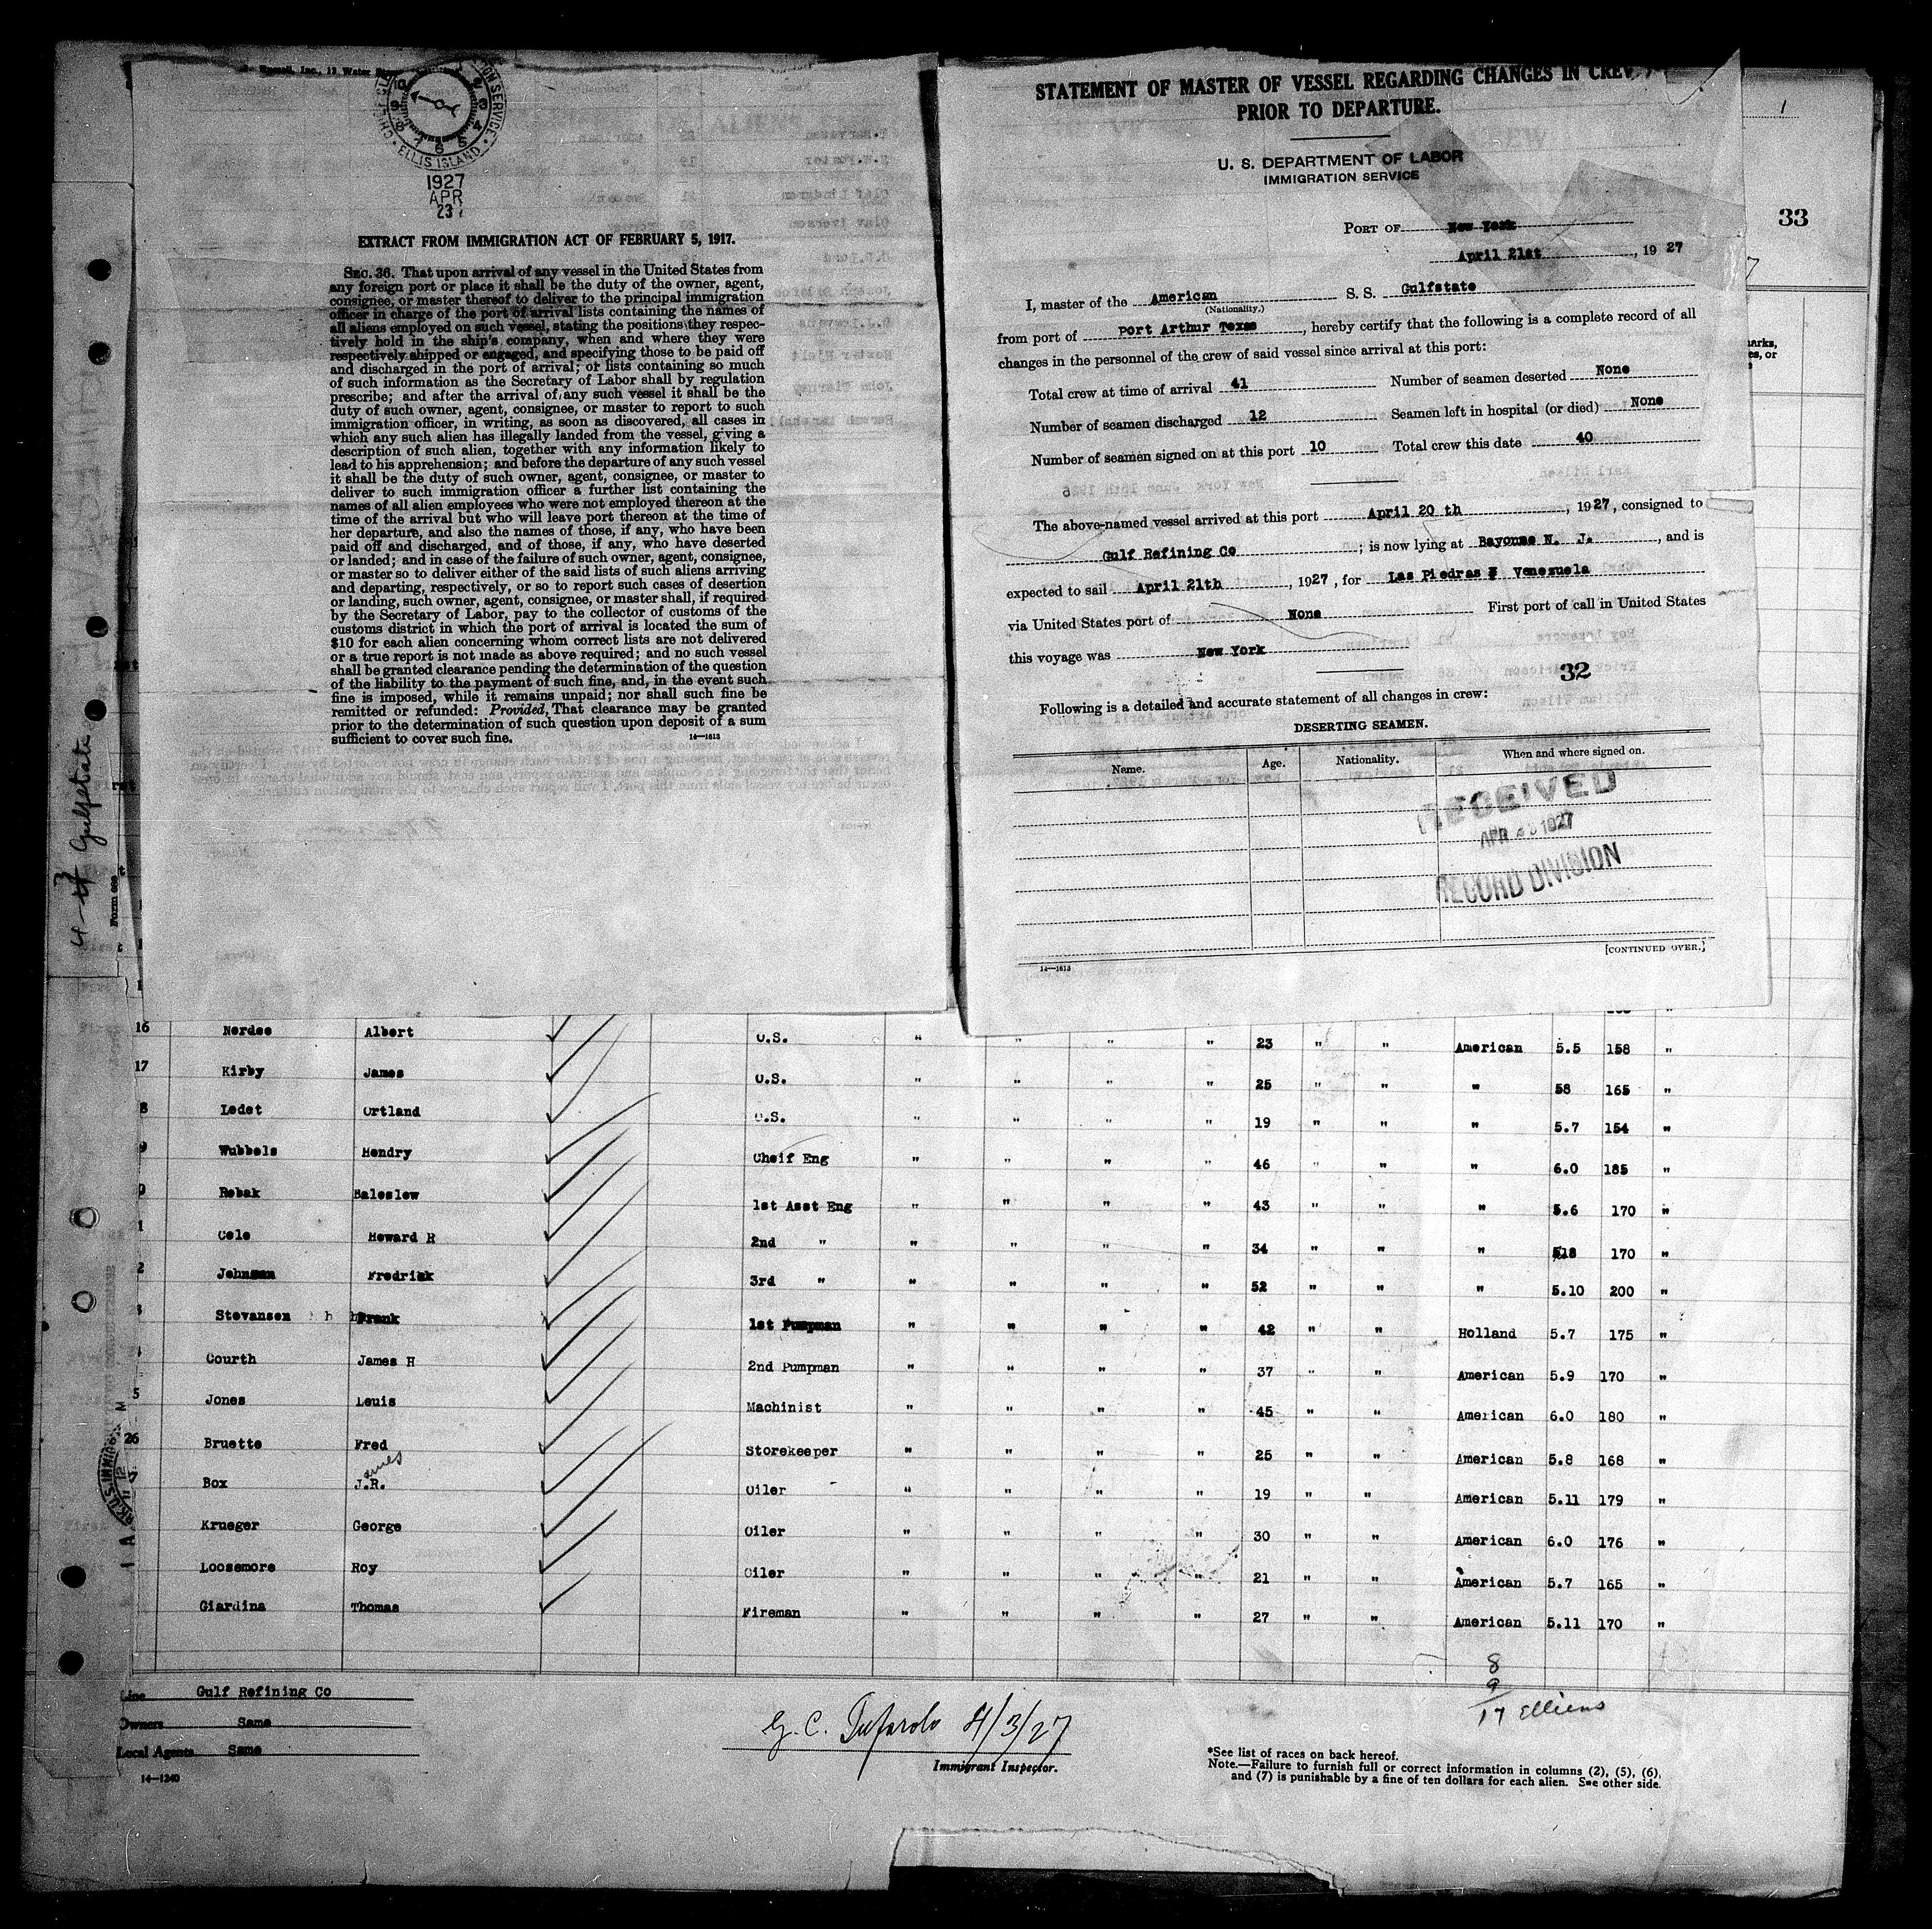 ELLIS ISLAND
1927
APR
23
EXTRACT FROM IMMIGRATION ACT OF FEBRUARY 5, 1917.
SEC. 36. That upon arrival of any vessel in the United States from
any foreign port or place it shall be the duty of the owner, agent,
consignee, or master thereof to deliver to the principal immigration
officer in charge of the port of arrival lists containing the names of
all aliens employed on such vessel, stating the positions they respec-
tively hold in the ship's company, when and where they were
respectively shipped or engaged, and specifying those to be paid off
and discharged in the port of arrival; or lists containing so much
of such information as the Secretary of Labor shall by regulation
prescribe; and after the arrival of any such vessel it shall be the
duty of such owner, agent, consignee, or master to report to such
immigration officer, in writing, as soon as discovered, all cases in
which any such alien has illegally landed from the vessel, giving a
description of such alien, together with any information likely to
lead to his apprehension; and before the departure of any such vessel
it shall be the duty of such owner, agent, consignee, or master to
deliver to such immigration officer a further list containing the
names of all alien employees who were not employed thereon at the
time of the arrival but who will leave port thereon at the time of
her departure, and also the names of those, if any, who have been
paid off and discharged, and of those, if any, who have deserted
or landed; and in case of the failure of such owner, agent, consignee,
or master so to deliver either of the said lists of such aliens arriving
and departing, respectively, or so to report such cases of desertion
or landing, such owner, agent, consignee, or master shall, if required
by the Secretary of Labor, pay to the collector of customs of the
customs district in which the port of arrival is located the sum of
$10 for each alien concerning whom correct lists are not delivered
or a true report is not made as above required; and no such vessel
shall be granted clearance pending the determination of the question
of the liability to the payment of such fine, and, in the event such
fine is imposed, while it remains unpaid; nor shall such fine be
remitted or refunded: Provided, That clearance may be granted
prior to the determination of such question upon deposit of a sum
sufficient to cover such fine. 14—1613
STATEMENT OF MASTER OF VESSEL REGARDING CHANGES IN CREW
PRIOR TO DEPARTURE.
U. S. DEPARTMENT OF LABOR
IMMIGRATION SERVICE
PORT OF New York
April 21st, 1927
33
I, master of the American S. S. Gulfstate
(Nationality.)
from port of Port Arthur Texas, hereby certify that the following is a complete record of all
changes in the personnel of the crew of said vessel since arrival at this port:
Total crew at time of arrival 41 Number of seamen deserted None
Number of seamen discharged 12 Seamen left in hospital (or died) None
Number of seamen signed on at this port 10 Total crew this date 40
The above-named vessel arrived at this port April 20 th, 1927, consigned to
Gulf Refining Co; is now lying at Bayonne N. J., and is
expected to sail April 21th, 1927, for Las Piedras Venezuela
via United States port of None First port of call in United States
this voyage was New York
32
Following is a detailed and accurate statement of all changes in crew:
DESERTING SEAMEN.
Name. Age. Nationality. When and where signed on.
RECEIVED
APR 1927
RECORD DIVISION
[CONTINUED OVER.]
14—1613
Gulfstate
16 Nerdee Albert O.S. " " " " 23 " " American 5.5 158 "
17 Kirby James O.S. " " " " 25 " " " 58 165 "
8 Ledet Ortland O.S. " " " " 19 " " " 5.7 154 "
9 Wubbels Hendry Cheif Eng " " " " 46 " " " 6.0 185 "
0 Rebak Baleslew 1st Asst Eng " " " " 43 " " " 5.6 170 "
1 Cole Howard R 2nd " " " " " 34 " " " 170 "
2 Johnson Fredrik 3rd " " " " " 52 " " " 5.10 200 "
3 Stevansen Frank 1st Pumpman " " " " 42 " " Holland 5.7 175 "
4 Courth James H 2nd Pumpman " " " " 37 " " American 5.9 170 "
5 Jones Leuis Machinist " " " " 45 " " American 6.0 180 "
26 Bruette Fred Storekeeper " " " " 25 " " American 5.8 168 "
7 Box J.R. ames Oiler " " " " 19 " " American 5.11 179 "
Krueger George Oiler " " " " 30 " " American 6.0 176 "
Loosemore Roy Oiler " " " " 21 " " American 5.7 165 "
Giardina Thomas Fireman " " " " 27 " " American 5.11 170 "
8
9
17 Elliens
Line Gulf Refining Co
Owners Same
Local Agents Same
14—1240
G. C. Tufarolo 4/3/27
Immigrant Inspector.
*See list of races on back hereof.
Note.—Failure to furnish full or correct information in columns (2), (5), (6),
and (7) is punishable by a fine of ten dollars for each alien. See other side.